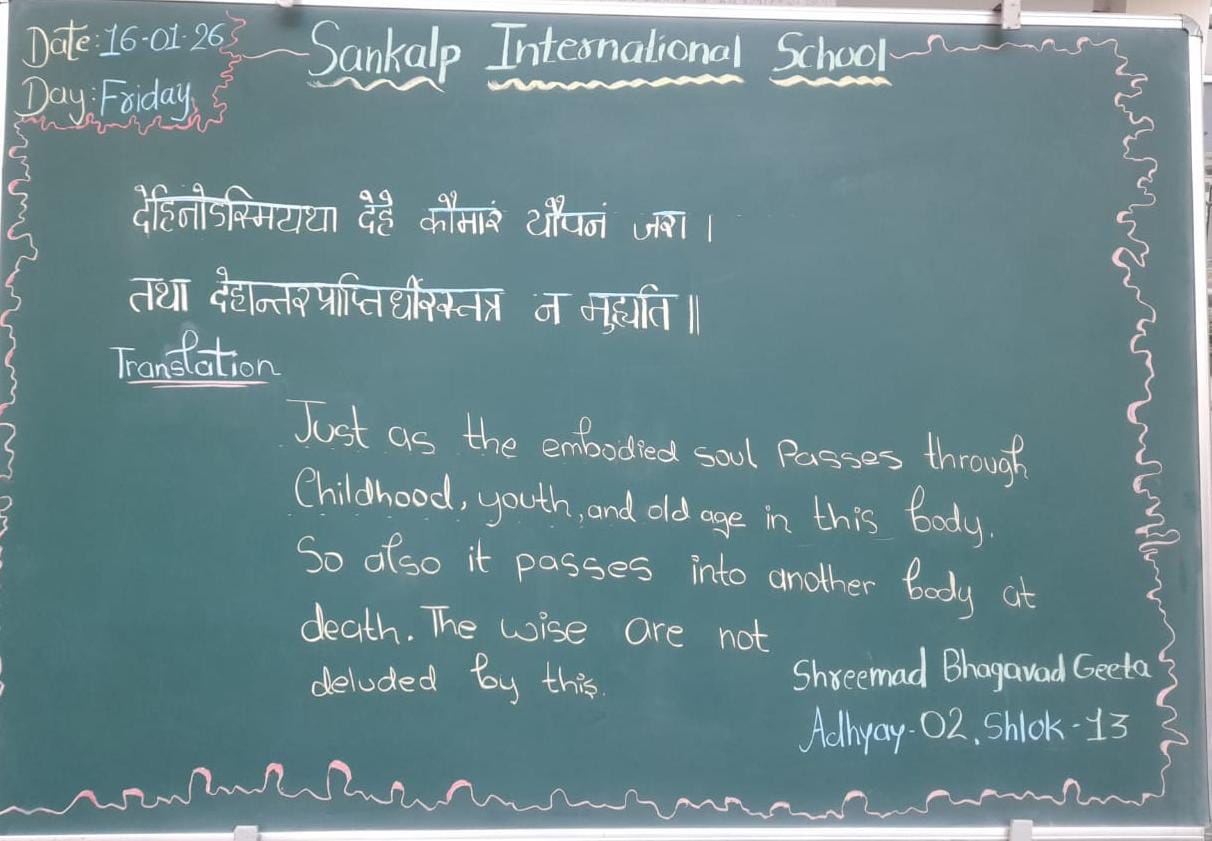 Date:16-01-26
Day:Friday
Sankalp International School
देहिनोडस्मियथा देहे कौमारं यौपनं जरा ।
तथा देहान्तरप्राप्तिर्धीरस्तत्र न मुह्यति ॥
Translation
Just as the embodied soul Passes through
Childhood, youth, and old age in this body.
So also it passes into another body at
death. The wise are not
deluded by this.
Shreemad Bhagavad Geeta
Adhyay-02, Shlok-13